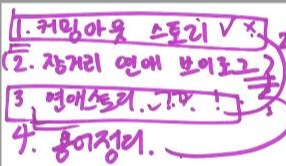 1. 커밍아웃 스토리 ✓ ×
2. 장거리 연애 브이로그
3 연애스토리.
4. 용어정리.